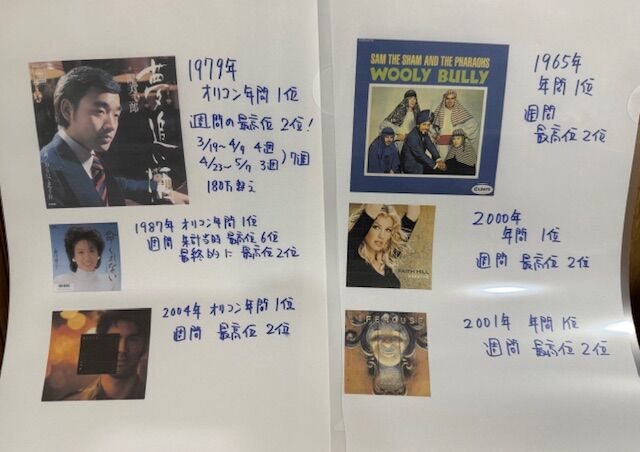 夢追い酒
1979年
オリコン年間1位
週間の最高位 2位!
3/19~4/9 4週
4/23~5/7 3週 )7週
180万枚
1987年 オリコン年間1位
週間 集計当時 最高位6位
最終的に 最高位2位
命くれない
2004年 オリコン年間1位
週間 最高位 2位
SAM THE SHAM AND THE PHARAOHS
WOOLY BULLY
1965年
年間1位
週間
最高位2位
FAITH HILL
2000年
年間 1位
週間 最高位 2位
2001年 年間1位
週間 最高位2位